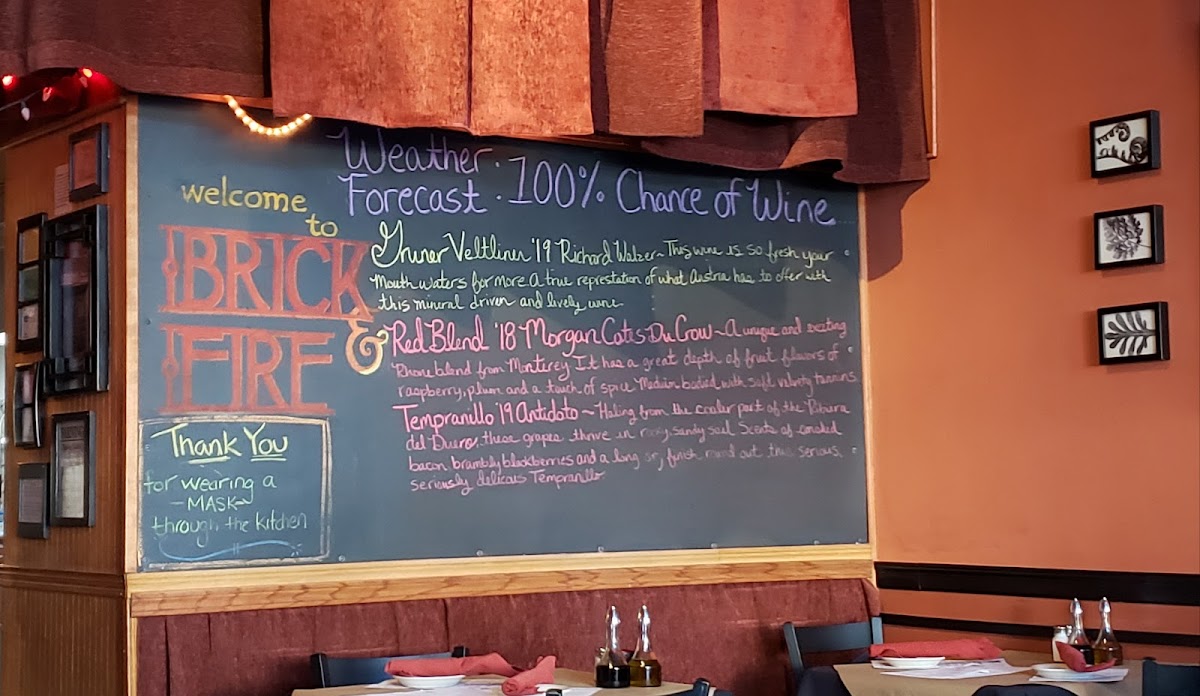 Weather
Forecast · 100% Chance of Wine
welcome
to
BRICK
&
FIRE
Gruner Veltliner '19 Richard Walzer~ This wine is so fresh your
mouth waters for more A true represtation of what Austria has to offer with
this mineral driven and lively wine
Red Blend '18 Morgan Cotes Du Crow~ A unique and exciting
Rhone blend from Monterey It has a great depth of fruit flavors of
raspberry, plum and a touch of spice Medium bodied with soft velvety tannins
Tempranillo '19 Antidoto ~ Hailing from the cooler part of the Ribera
del Duero, these grapes thrive in rocky, sandy soil Scents of smoked
bacon brambly blackberries and a long finish round out this serious,
seriously delicious Tempranillo
Thank You
for wearing a
-MASK-
through the kitchen